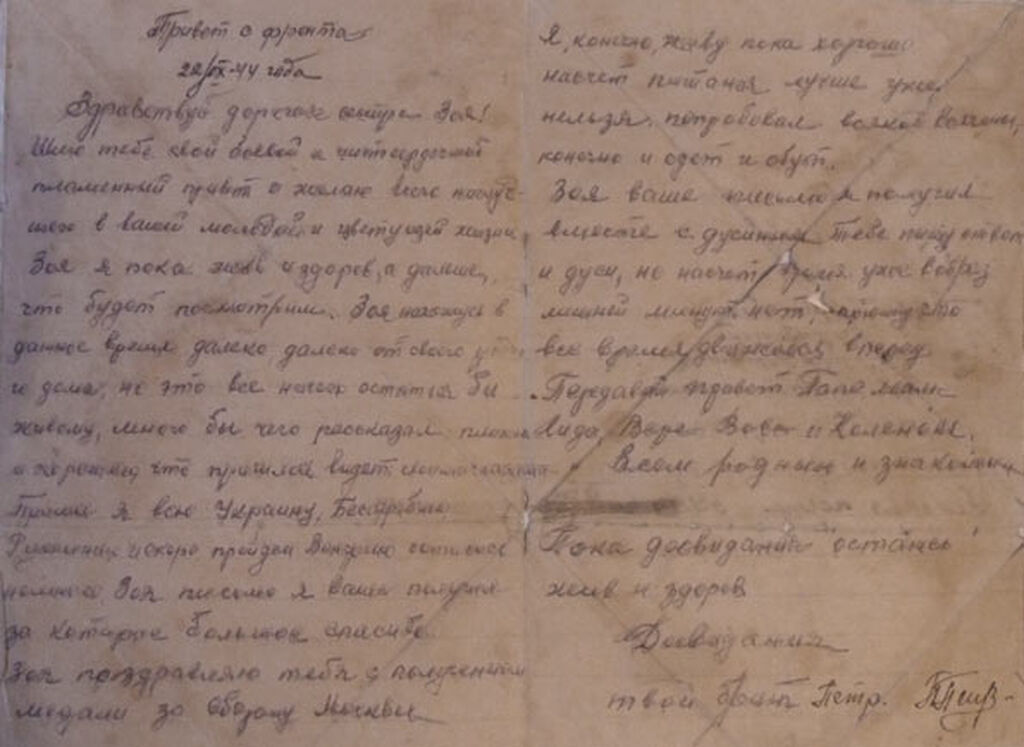 Привет с фронта
22/IX-44 года
Здравствуй дорогая сестра Зоя!
Шлю тебе свой боевой и чистосердечный
пламенный привет и желаю всего наилуч-
шего в вашей молодой и цветущей жизни
Зоя я пока жив и здоров, а дальше,
что будет посмотрим. Зоя нахожусь в
данное время далеко далеко от своего
и дома, но это все ничего остаться бы
живому, много бы чего рассказал плохо
и хорошего, что пришлось видеть
Прошли я всю Украину, Бесарабию
и скоро пройдем Венгрию
Зоя письмо я ваше получил
за которое большое спасибо
Зоя поздравляю тебя с получением
медали за Оборону Москвы
Я, конечно, живу пока хорошо
насчет питания лучше уже
нельзя, попробовал всякой
конечно и одет и обут.
Зоя ваше письмо я получил
вместе с дусиным Тебе пишу ответ
и дуси, но насчет время уже
лишней минуты нет,
все время движемся вперед
Передавай привет Папе маме
Лида, Вере Вове и
Всем родным и знакомым
Пока досвидания остаюсь
жив и здоров
Досвидания
твой брат Петр.